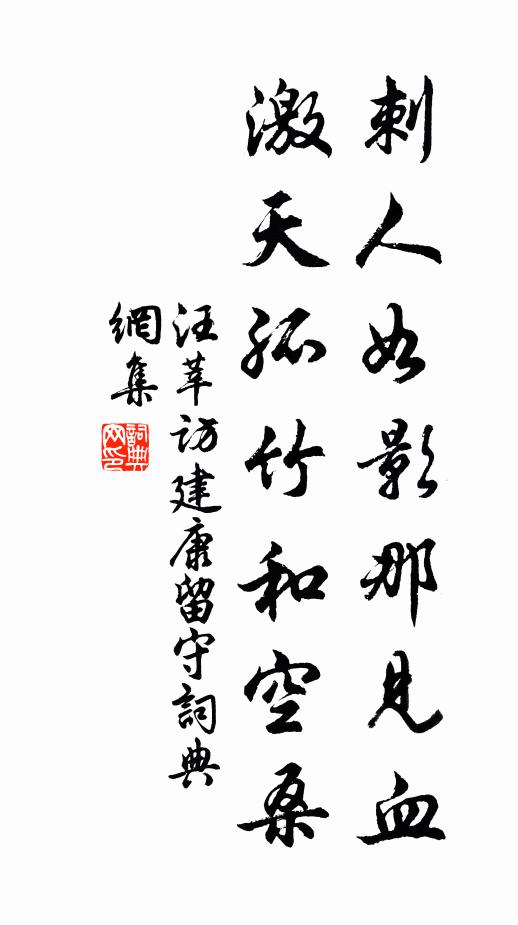 刺人如影那見血
激天孤竹和空桑
汪莘訪建康留守詞典
網集
詞典
网印